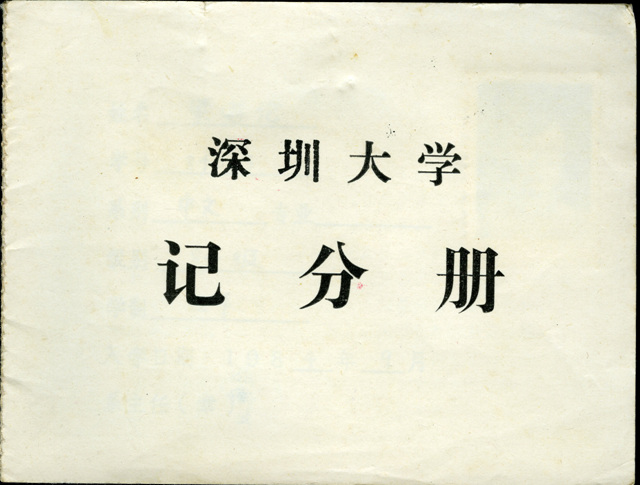 深圳大学
记分册